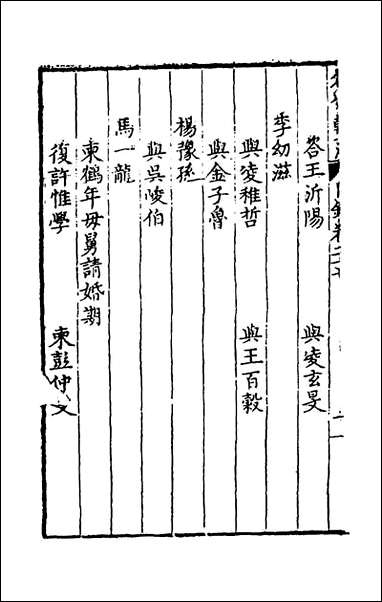 答王沂陽 與凌玄旻
季幼滋
與凌稚哲 與王百穀
與金子魯
楊豫孫
與吳峻伯
馬一龍
柬鶴年母舅請婚期
復許惟學 柬彭仲文